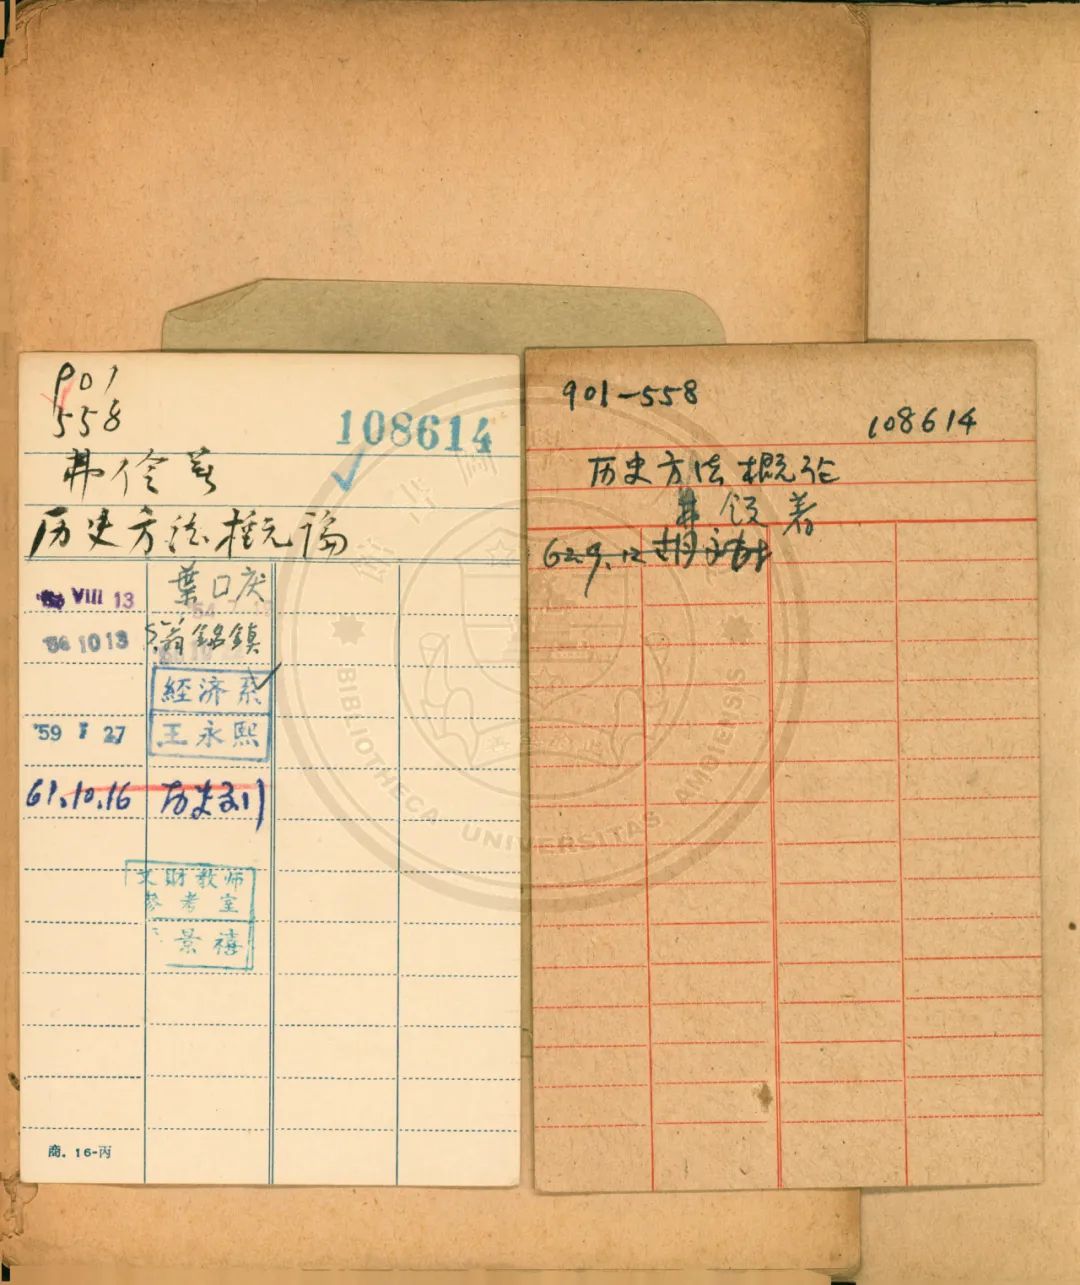 901
558
108614
弗伶著
历史方法概論
VIII 13
葉口庆
'56 10 13
翁銘鎮
經济系
王永熙
'59 I 27
61.10.16
历史系
文財教师
参考室
景禧
商. 16-丙
901-558
108614
历史方法概论
弗領著
62.9.12
BIBLIOTHECA UNIVERSITAS AMOIENSIS